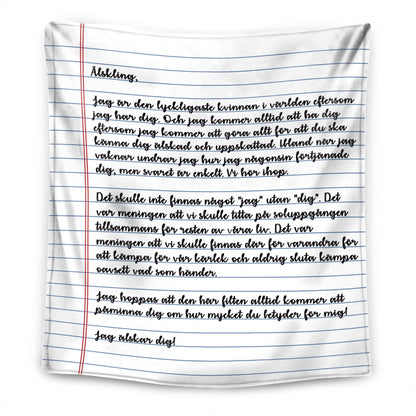 Älskling,
Jag är den lyckligaste kvinnan i världen eftersom
jag har dig. Och jag kommer alltid att ha dig
eftersom jag kommer att göra allt för att du ska
känna dig älskad och uppskattad. Ibland när jag
vaknar undrar jag hur jag någonsin förtjänade
dig, men svaret är enkelt. Vi hör ihop.
Det skulle inte finnas något "jag" utan "dig". Det
var meningen att vi skulle titta på soluppgången
tillsammans för resten av våra liv. Det var
meningen att vi skulle finnas där för varandra för
att kämpa för vår kärlek och aldrig sluta kämpa
oavsett vad som händer.
Jag hoppas att den här filten alltid kommer att
påminna dig om hur mycket du betyder för mig!
Jag älskar dig!